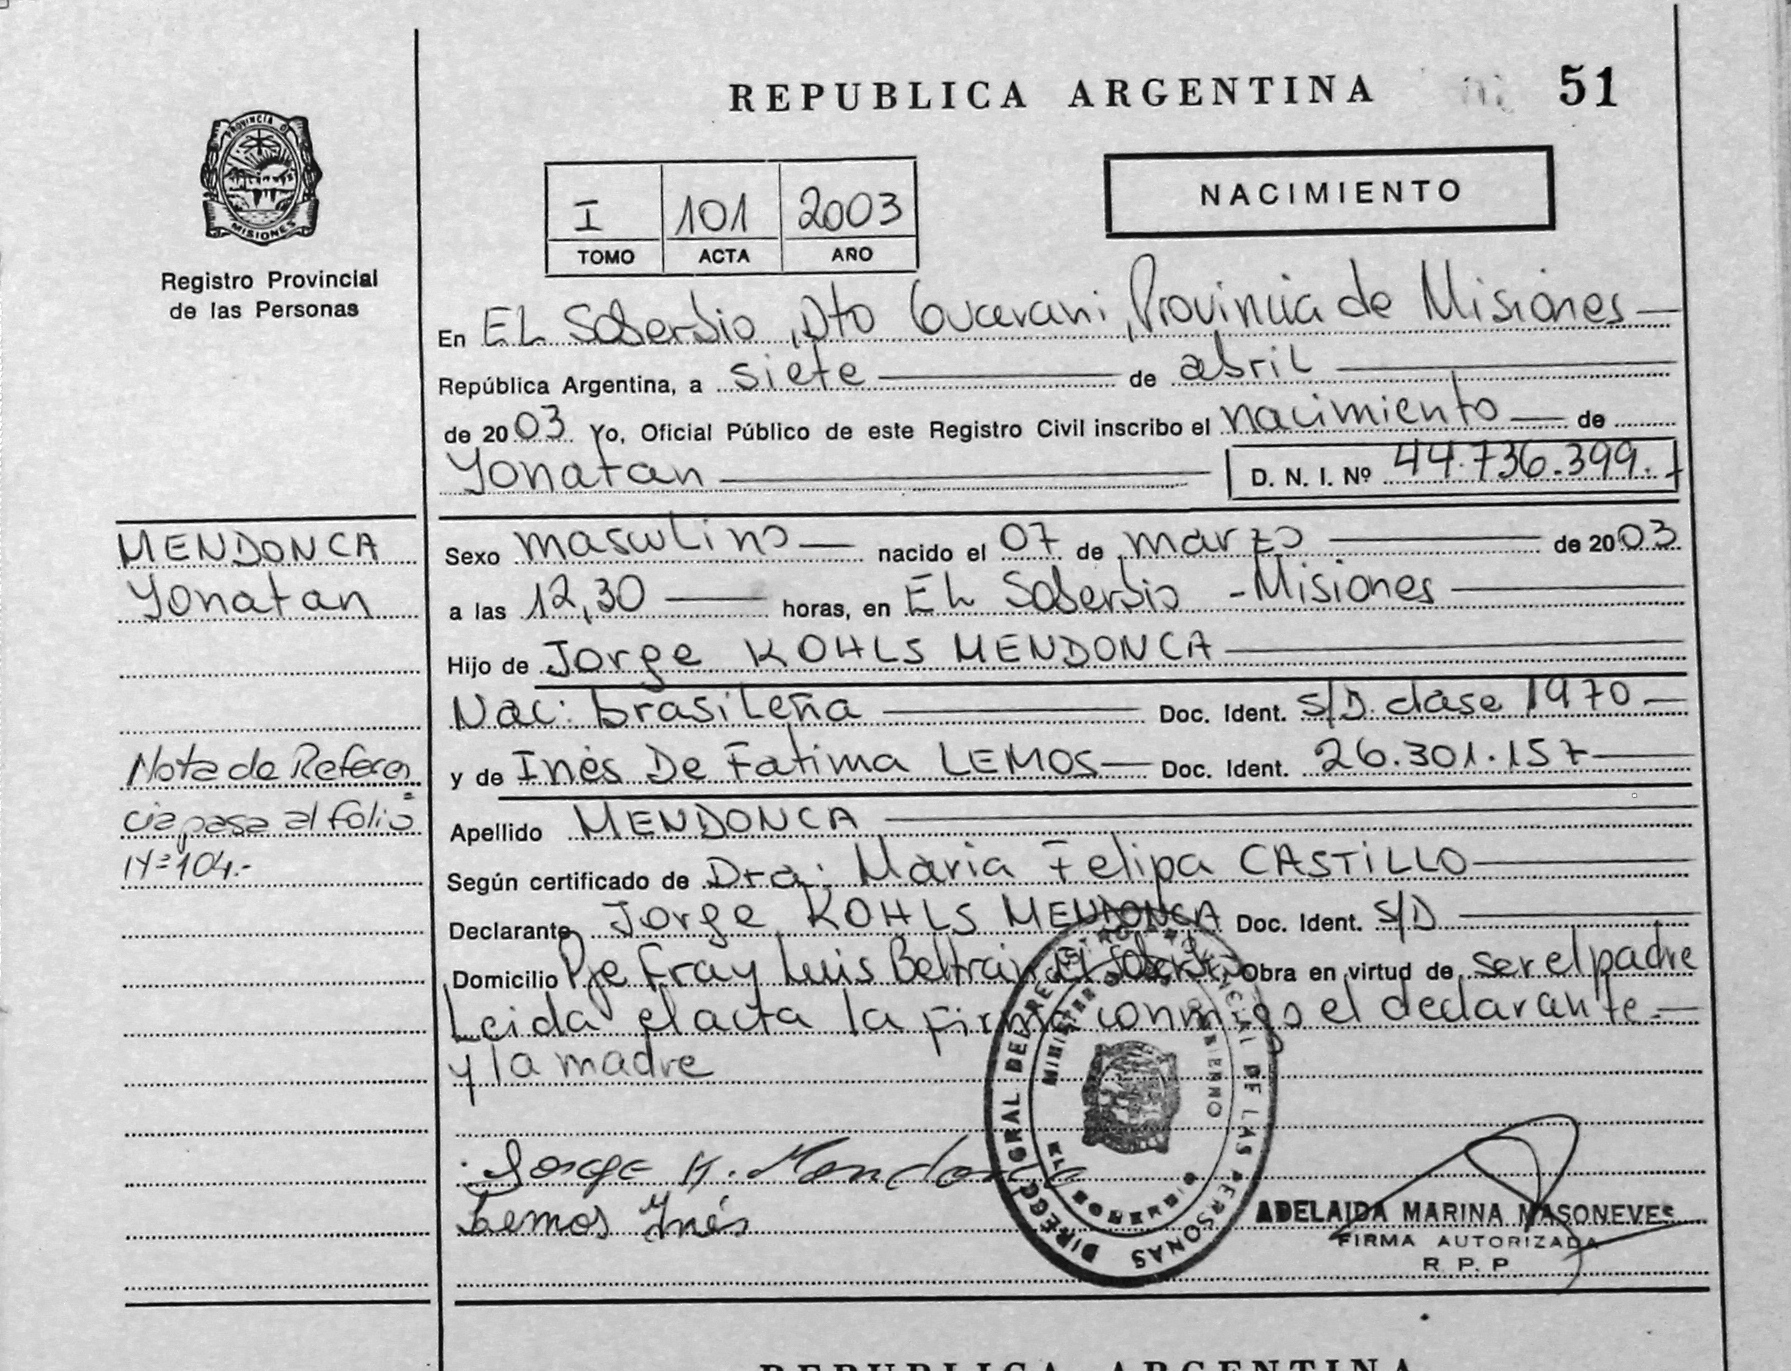 REPUBLICA ARGENTINA 51
PROVINCIA D
MISIONES
Registro Provincial
de las Personas
I 101 2003
TOMO ACTA AÑO
NACIMIENTO
En EL Soberbio, Dto Guarani, Provincia de Misiones
República Argentina, a siete de abril
de 2003 Yo, Oficial Público de este Registro Civil inscribo el nacimiento de
Yonatan D. N. I. Nº 44.736.399.-
MENDONCA
Yonatan
Nota de Referen
cia pasa al folio
Nº 104.-
Sexo masculino nacido el 07 de marzo de 2003
a las 12,30 horas, en EL Soberbio - Misiones
Hijo de Jorge KOHLS MENDONCA
Nac: brasileña Doc. Ident. S/D. clase 1970
y de Inés De Fatima LEMOS Doc. Ident. 26.301.157
Apellido MENDONCA
Según certificado de Dra: Maria Felipa CASTILLO
Declarante Jorge KOHLS MENDONCA Doc. Ident. S/D
Domicilio Pje Fray Luis Beltrán El Soberbio Obra en virtud de ser el padre
Leida el acta la firma conmigo el declarante
y la madre
Jorge K. Mendonca
Lemos Inés
DIRECC GRAL DE REGISTRO PROVINCIAL DE LAS PERSONAS
MINISTERIO DE GOBIERNO
EL SOBERBIO
ADELAIDA MARINA MASONEVES
FIRMA AUTORIZADA
R. P. P
REPUBLICA ARGENTINA